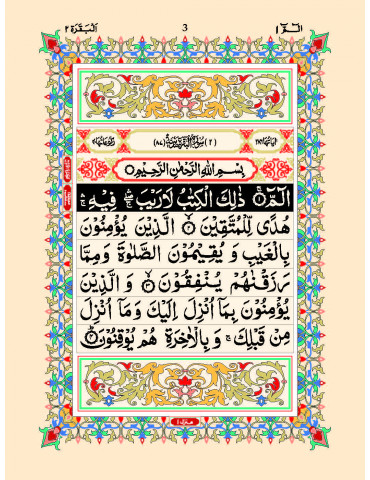 الٓمّٓ ١ 3 اَلْبَقَرَة ٢
اٰيَاتُهَا ٢٨٦ (٢) سُوْرَةُ الْبَقَرَةِ مَدَنِيَّةٌ (٨٧) رُكُوْعَاتُهَا ٤٠
بِسْمِ اللّٰهِ الرَّحْمٰنِ الرَّحِيْمِ ○
الٓمّٓ ۚ۝ ذٰلِكَ الْكِتٰبُ لَا رَيْبَ ۛۖ فِيْهِ ۛۚ
هُدًى لِّلْمُتَّقِيْنَ ۙ۝ الَّذِيْنَ يُؤْمِنُوْنَ
بِالْغَيْبِ وَ يُقِيْمُوْنَ الصَّلٰوةَ وَمِمَّا
رَزَقْنٰهُمْ يُنْفِقُوْنَ ۙ۝ وَ الَّذِيْنَ
يُؤْمِنُوْنَ بِمَاۤ اُنْزِلَ اِلَيْكَ وَ مَاۤ اُنْزِلَ
مِنْ قَبْلِكَ ۚ وَ بِالْاٰخِرَةِ هُمْ يُوْقِنُوْنَ ؕ۝
منزل ١